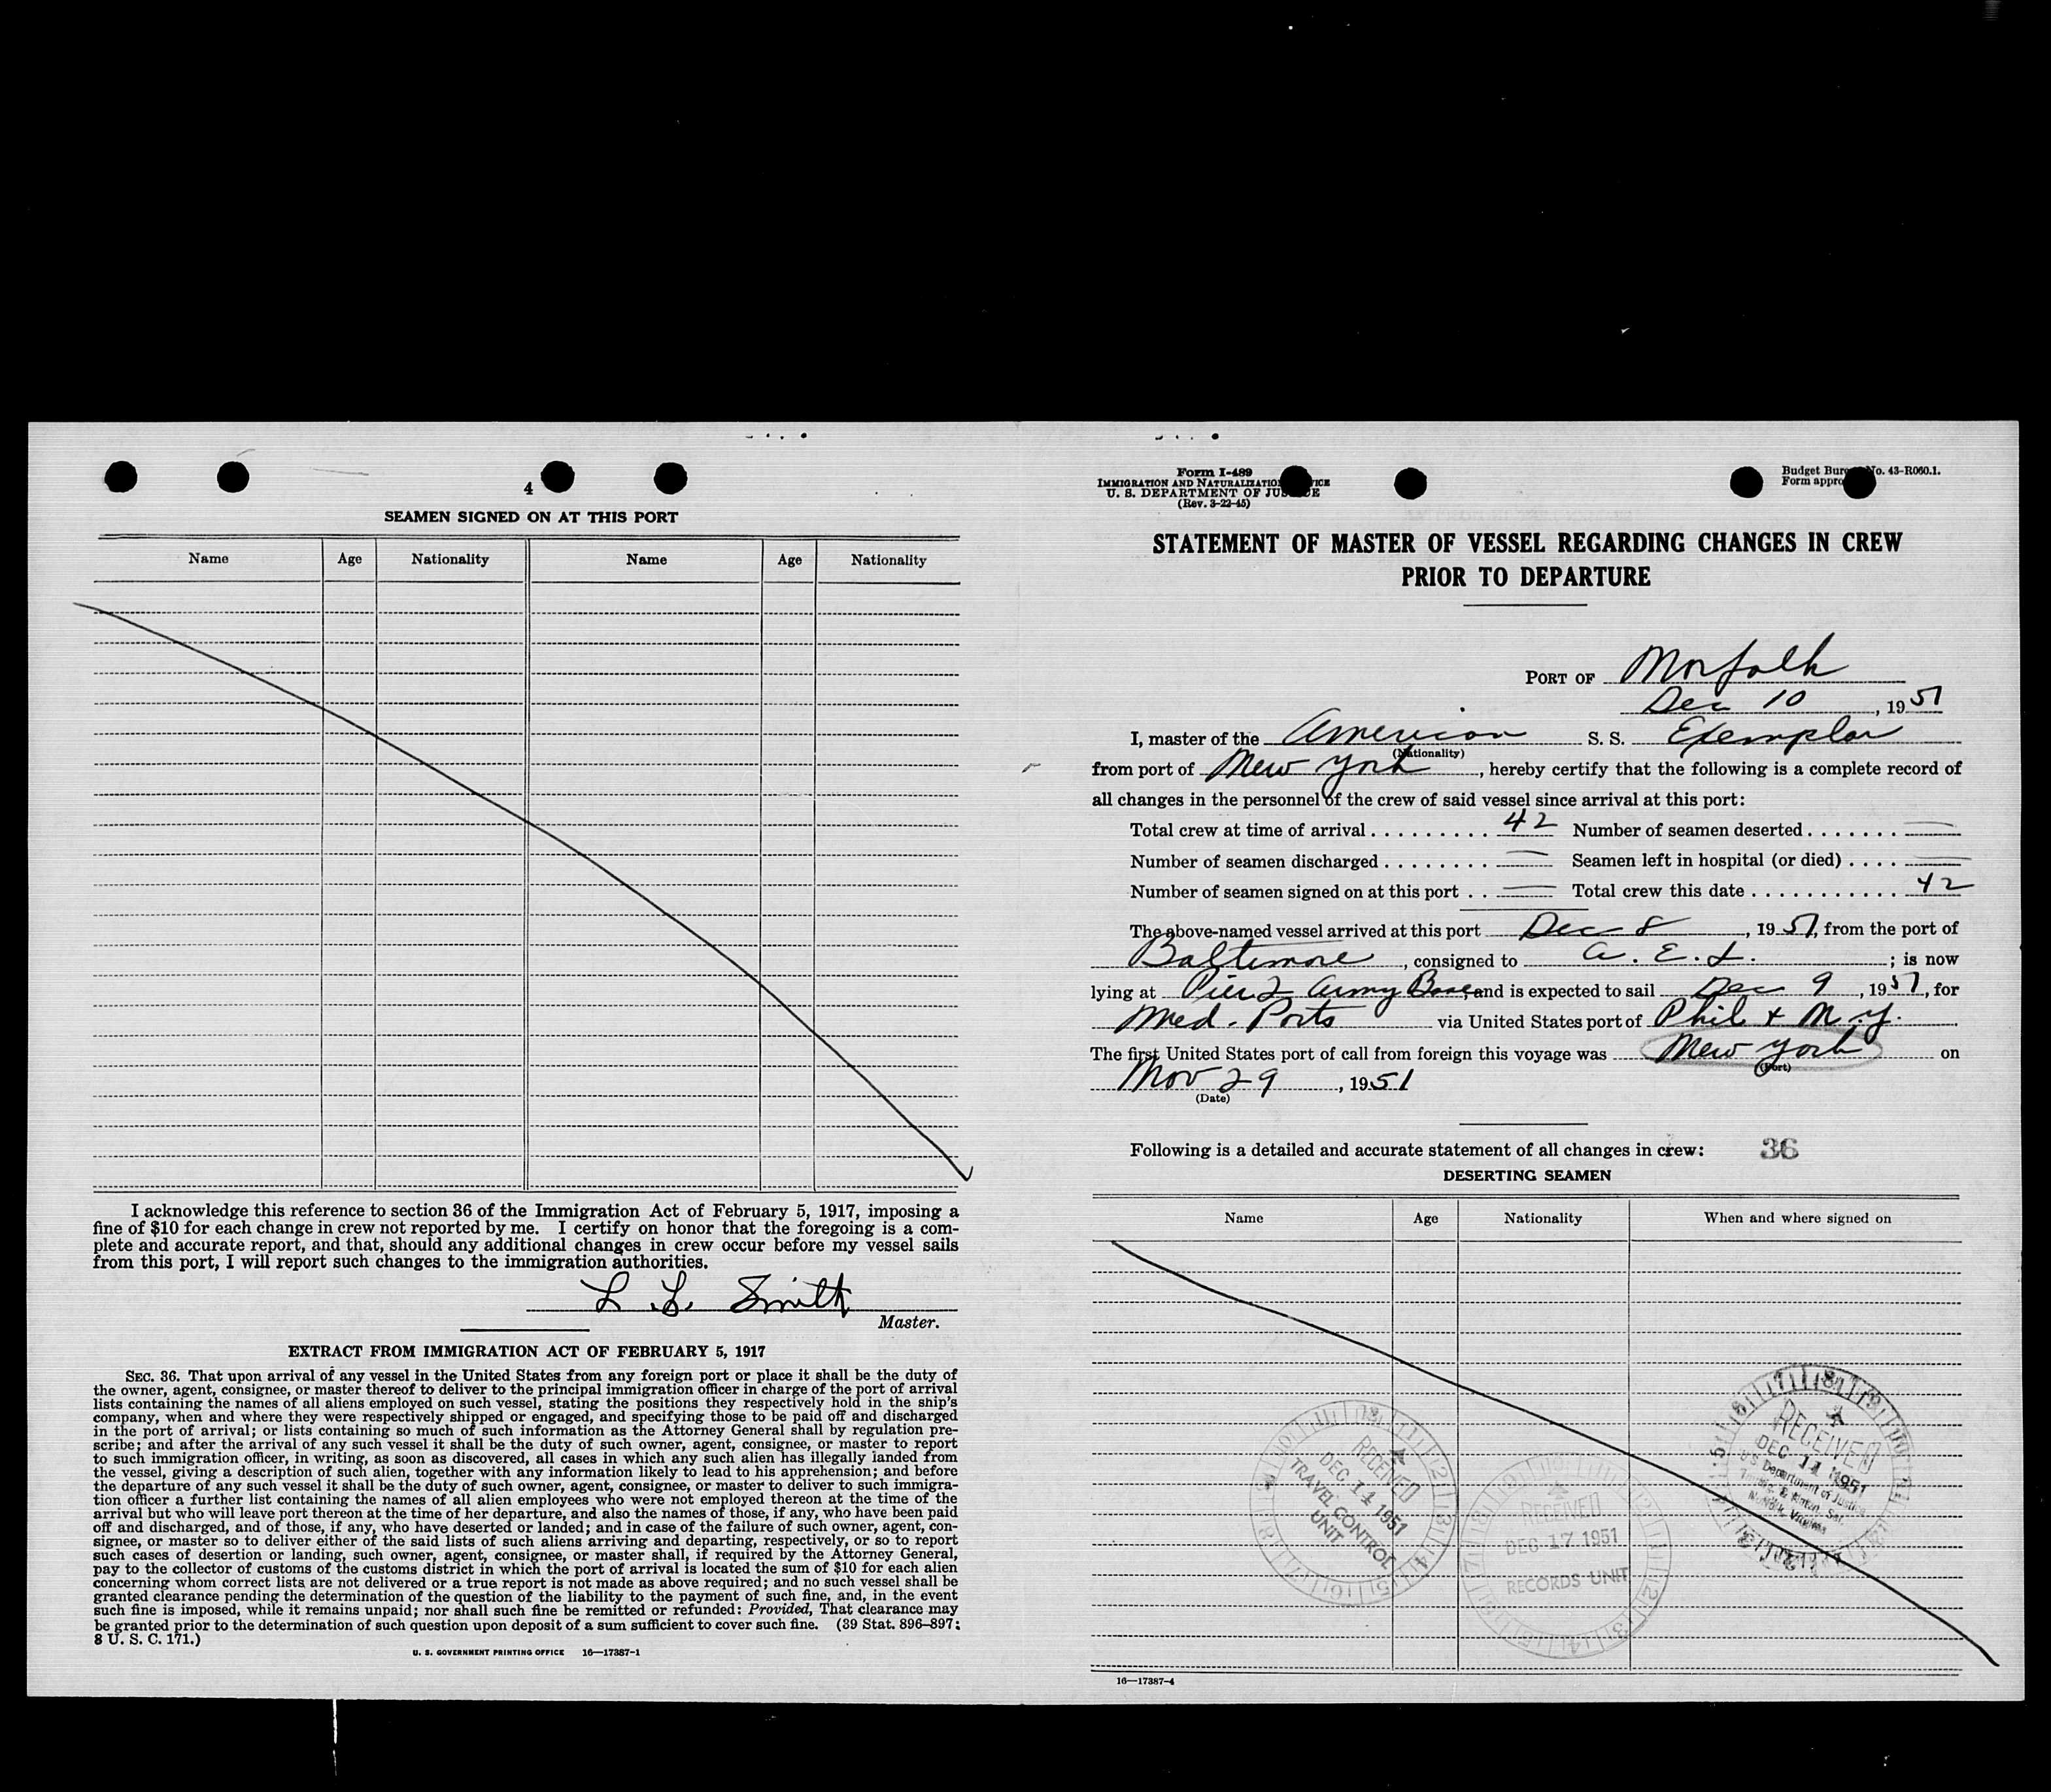 4
SEAMEN SIGNED ON AT THIS PORT
Name Age Nationality Name Age Nationality
I acknowledge this reference to section 36 of the Immigration Act of February 5, 1917, imposing a
fine of $10 for each change in crew not reported by me. I certify on honor that the foregoing is a com-
plete and accurate report, and that, should any additional changes in crew occur before my vessel sails
from this port, I will report such changes to the immigration authorities.
L. L. Smith
Master.
EXTRACT FROM IMMIGRATION ACT OF FEBRUARY 5, 1917
SEC. 36. That upon arrival of any vessel in the United States from any foreign port or place it shall be the duty of
the owner, agent, consignee, or master thereof to deliver to the principal immigration officer in charge of the port of arrival
lists containing the names of all aliens employed on such vessel, stating the positions they respectively hold in the ship's
company, when and where they were respectively shipped or engaged, and specifying those to be paid off and discharged
in the port of arrival; or lists containing so much of such information as the Attorney General shall by regulation pre-
scribe; and after the arrival of any such vessel it shall be the duty of such owner, agent, consignee, or master to report
to such immigration officer, in writing, as soon as discovered, all cases in which any such alien has illegally landed from
the vessel, giving a description of such alien, together with any information likely to lead to his apprehension; and before
the departure of any such vessel it shall be the duty of such owner, agent, consignee, or master to deliver to such immigra-
tion officer a further list containing the names of all alien employees who were not employed thereon at the time of the
arrival but who will leave port thereon at the time of her departure, and also the names of those, if any, who have been paid
off and discharged, and of those, if any, who have deserted or landed; and in case of the failure of such owner, agent, con-
signee, or master so to deliver either of the said lists of such aliens arriving and departing, respectively, or so to report
such cases of desertion or landing, such owner, agent, consignee, or master shall, if required by the Attorney General,
pay to the collector of customs of the customs district in which the port of arrival is located the sum of $10 for each alien
concerning whom correct lists are not delivered or a true report is not made as above required; and no such vessel shall be
granted clearance pending the determination of the question of the liability to the payment of such fine, and, in the event
such fine is imposed, while it remains unpaid; nor shall such fine be remitted or refunded: Provided, That clearance may
be granted prior to the determination of such question upon deposit of a sum sufficient to cover such fine. (39 Stat. 896–897;
8 U. S. C. 171.)
U. S. GOVERNMENT PRINTING OFFICE 16—17387-1
Form I-489
IMMIGRATION AND NATURALIZATIO
U. S. DEPARTMENT OF JUS E
(Rev. 3-22-45)
Budget Bure No. 43-R060.1.
Form appro
STATEMENT OF MASTER OF VESSEL REGARDING CHANGES IN CREW
PRIOR TO DEPARTURE
PORT OF Norfolk
Dec 10, 1951
I, master of the American S. S. Exemplar
(Nationality)
from port of New York, hereby certify that the following is a complete record of
all changes in the personnel of the crew of said vessel since arrival at this port:
Total crew at time of arrival . . . . . . . . . 42 Number of seamen deserted . . . . . . . —
Number of seamen discharged . . . . . . . . — Seamen left in hospital (or died) . . . . —
Number of seamen signed on at this port . . — Total crew this date . . . . . . . . . . . 42
The above-named vessel arrived at this port Dec 8, 1951, from the port of
Baltimore, consigned to A. E. L.; is now
lying at Pier 2 Army Base, and is expected to sail Dec 9, 1951, for
Med. Ports via United States port of Phil + N.Y.
The first United States port of call from foreign this voyage was New York on
(Port)
Nov 29, 1951
(Date)
Following is a detailed and accurate statement of all changes in crew: 36
DESERTING SEAMEN
Name Age Nationality When and where signed on
RECEIVED
DEC 14 1951
TRAVEL CONTROL
UNIT
RECEIVED
DEC 17 1951
RECORDS UNIT
RECEIVED
DEC 11 1951
U. S. Department of Justice
Norfolk, Virginia
16—17387-4